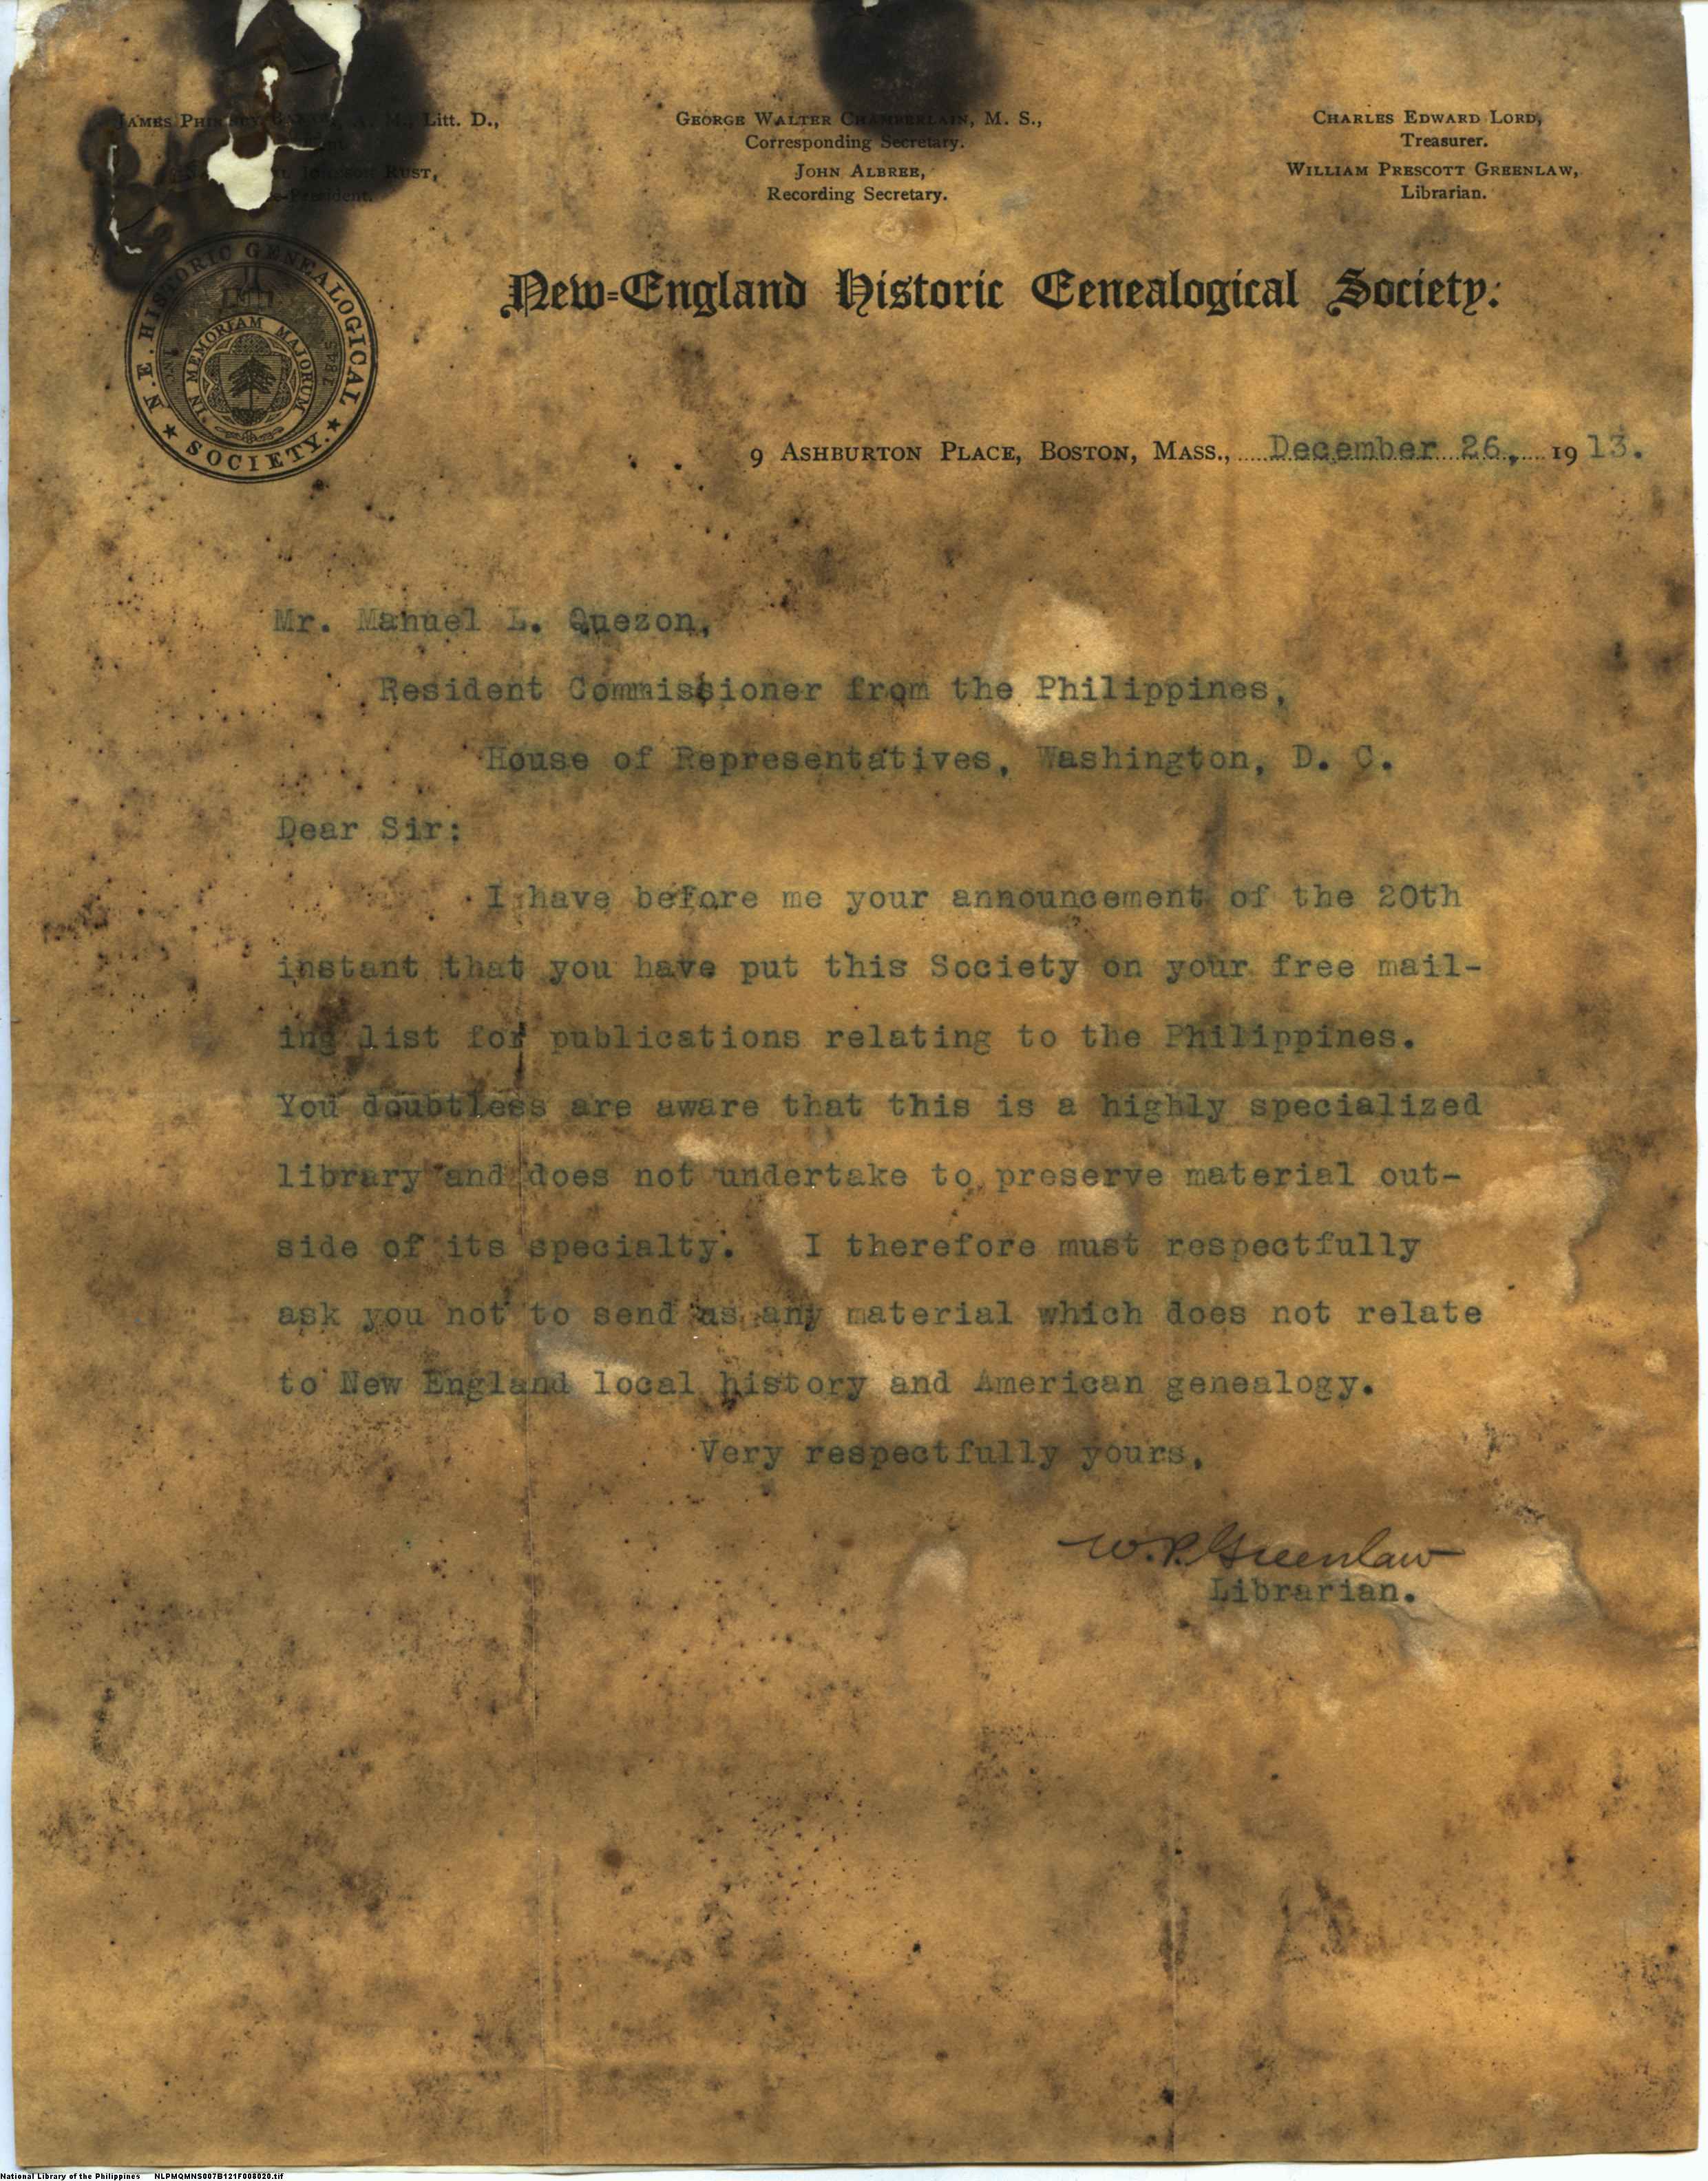 JAMES PHINNEY BAXTER, A. M., Litt. D.,
GEORGE WALTER CHAMBERLAIN, M. S.,
Corresponding Secretary.
CHARLES EDWARD LORD,
Treasurer.
RUST,
e-President.
JOHN ALBREE,
Recording Secretary.
WILLIAM PRESCOTT GREENLAW,
Librarian.
N. E. HISTORIC GENEALOGICAL
SOCIETY.
IN MEMORIAM MAJORUM
New-England Historic Genealogical Society:
9 ASHBURTON PLACE, BOSTON, MASS., December 26, 1913.
Mr. Manuel L. Quezon,
Resident Commissioner from the Philippines,
House of Representatives, Washington, D. C.
Dear Sir:
I have before me your announcement of the 20th
instant that you have put this Society on your free mail-
ing list for publications relating to the Philippines.
You doubtless are aware that this is a highly specialized
library and does not undertake to preserve material out-
side of its specialty. I therefore must respectfully
ask you not to send us any material which does not relate
to New England local history and American genealogy.
Very respectfully yours,
W. P. Greenlaw
Librarian.
National Library of the Philippines NLPMQMNS007B121F008020.tif